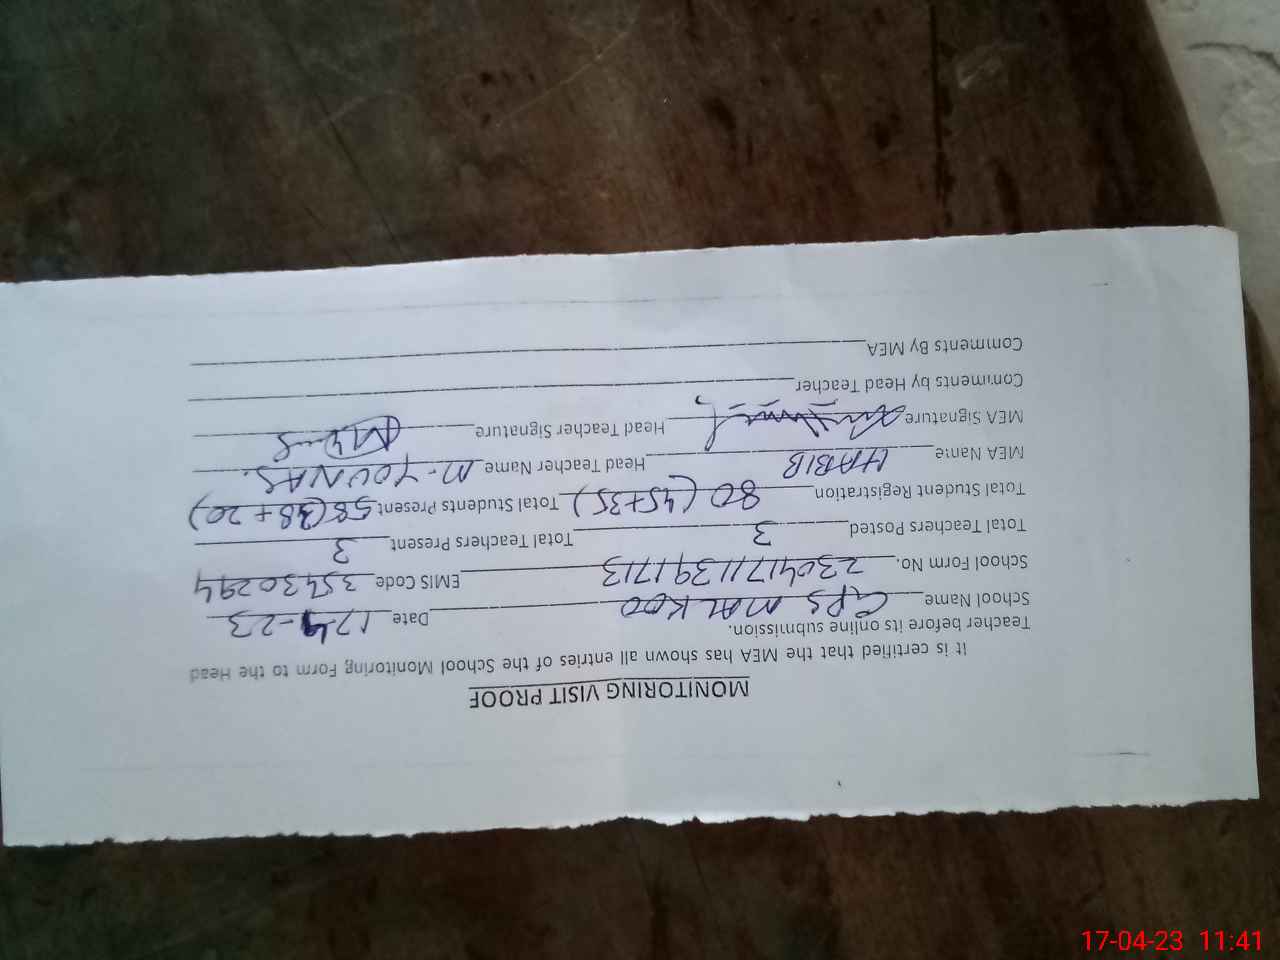 MONITORING VISIT PROOF
It is certified that the MEA has shown all entries of the School Monitoring Form to the Head
Teacher before its online submission.
School Name GPS MALKOO Date 17-4-23
School Form No. 23041711391713 EMIS Code 35430294
Total Teachers Posted 3 Total Teachers Present 3
Total Student Registration 80 (45+35) Total Students Present 58 (38+20)
MEA Name HABIB Head Teacher Name M. YOUNAS.
MEA Signature Head Teacher Signature
Comments by Head Teacher
Comments By MEA
17-04-23 11:41